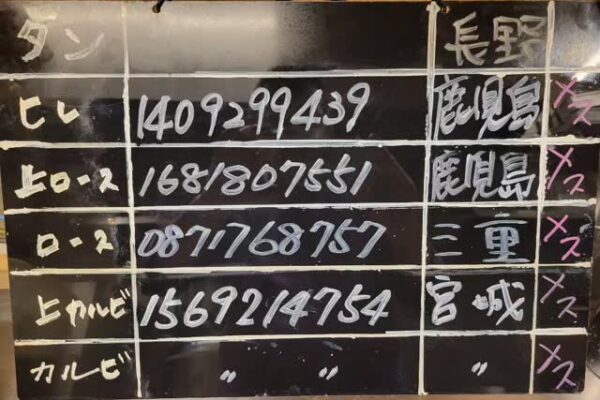 タン 長野
ヒレ 1409299439 鹿児島 メス
上ロース 1681807551 鹿児島 メス
ロース 0871768757 三重 メス
上カルビ 1569214754 宮城 メス
カルビ 〃 〃 〃 メス